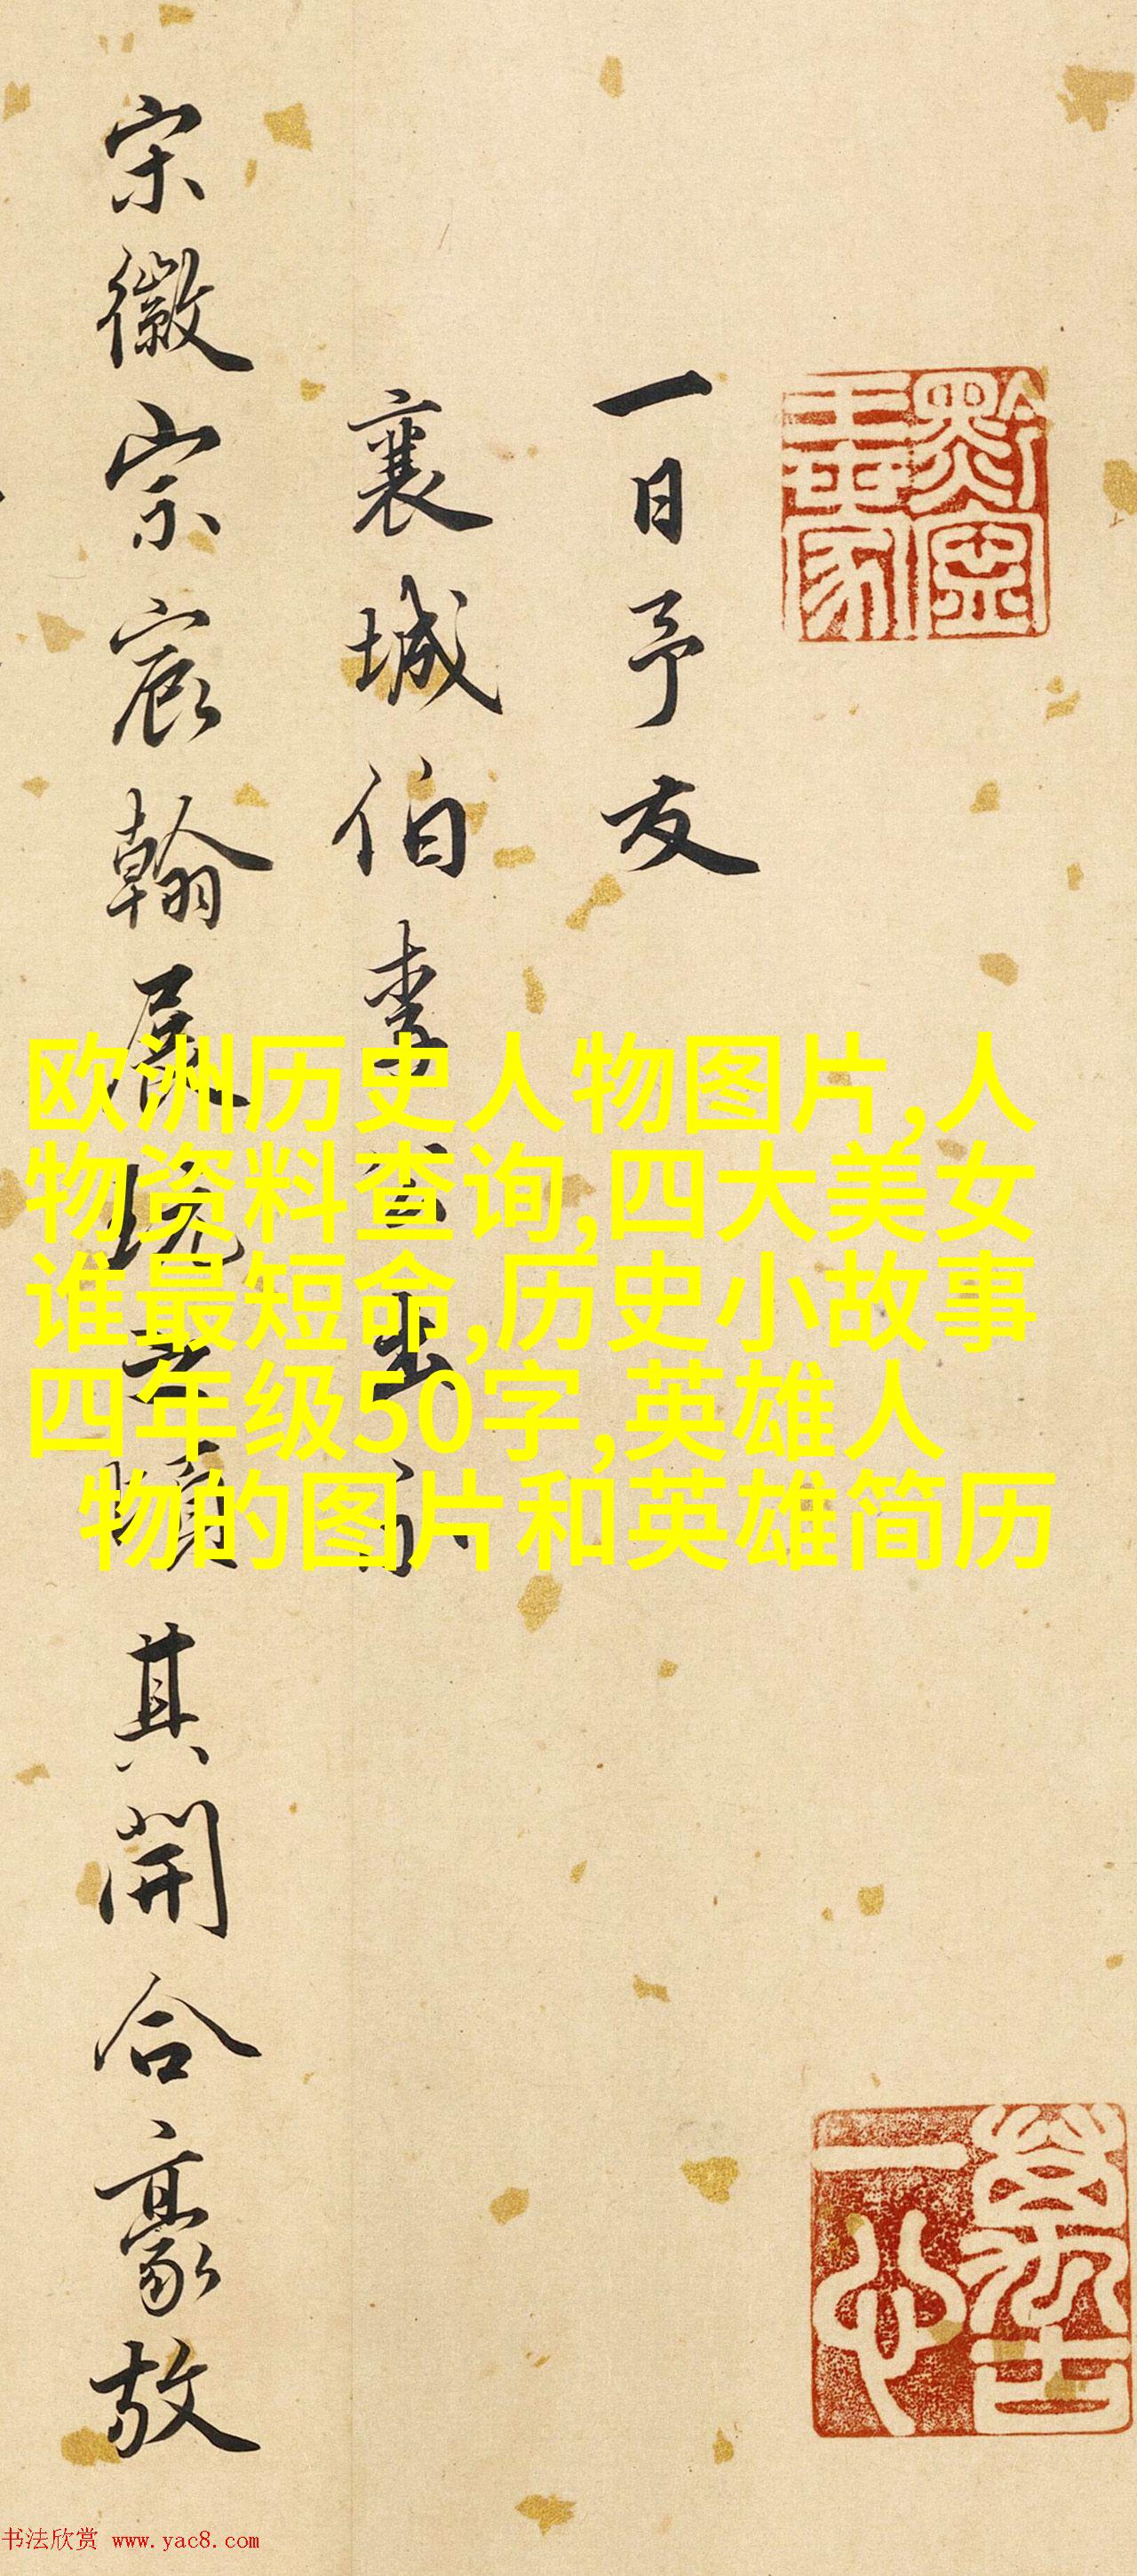 黔寧王世家
一日予友
襄城伯李出示
宋徽宗宸翰展玩之頃其開合豪放
欧洲历史人物图片,人
物资料查询,四大美女
谁最短命,历史小故事
四年级50字,英雄人
物的图片和英雄简历
萬古一心
书法欣赏 www.yac8.com